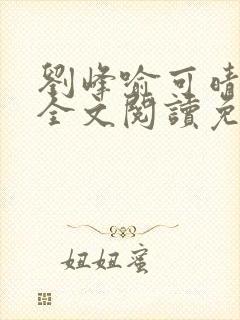 劉峰喻可晴
全文閱讀免
妞妞蜜